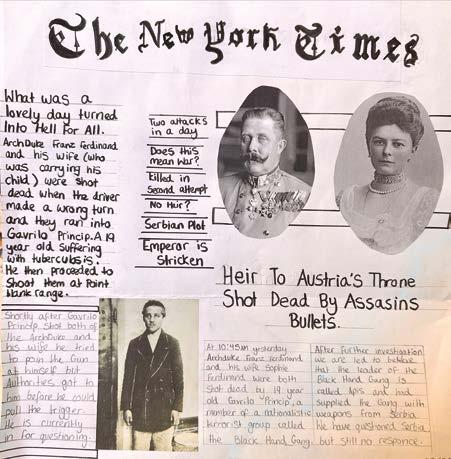 The New York Times
What was a
lovely day turned
Into Hell For All.
ArchDuke Franz Ferdinand
and his wife (who
was carrying his
child) were shot
dead when the driver
made a wrong turn
and they ran into
Gavrilo Princip. A 19
year old Suffering
with tubercubsis.
He then proceeded to
Shoot them at Point
blank range.
Two attacks
in a day
Does this
mean War?
Killed in
Second attempt
No Heir?
Serbian Plot
Emperor is
Stricken
Heir To Austria's Throne
Shot Dead By Assasins
Bullets.
Shortly after Gavrilo
Princip Shot both of
the ArchDuke and
his wife he tried
to point the Gun
at himself but
Authorities got to
him before he could
pull the trigger.
He is currently
in for questioning.
At 10:45am yesterday
Archduke Franz Ferdinand
and his wife Sophie
Ferdinand were both
shot dead by 19 year
old Gavrilo Princip, a
member of a nationalistic
terrorist group called
the Black Hand Gang.
After Further investigation
we are led to believe
that the leader of the
Black Hand Gang is
called Apis and had
supplied the Gang with
weapons from Serbia.
We have questioned Serbia
but still no responce.